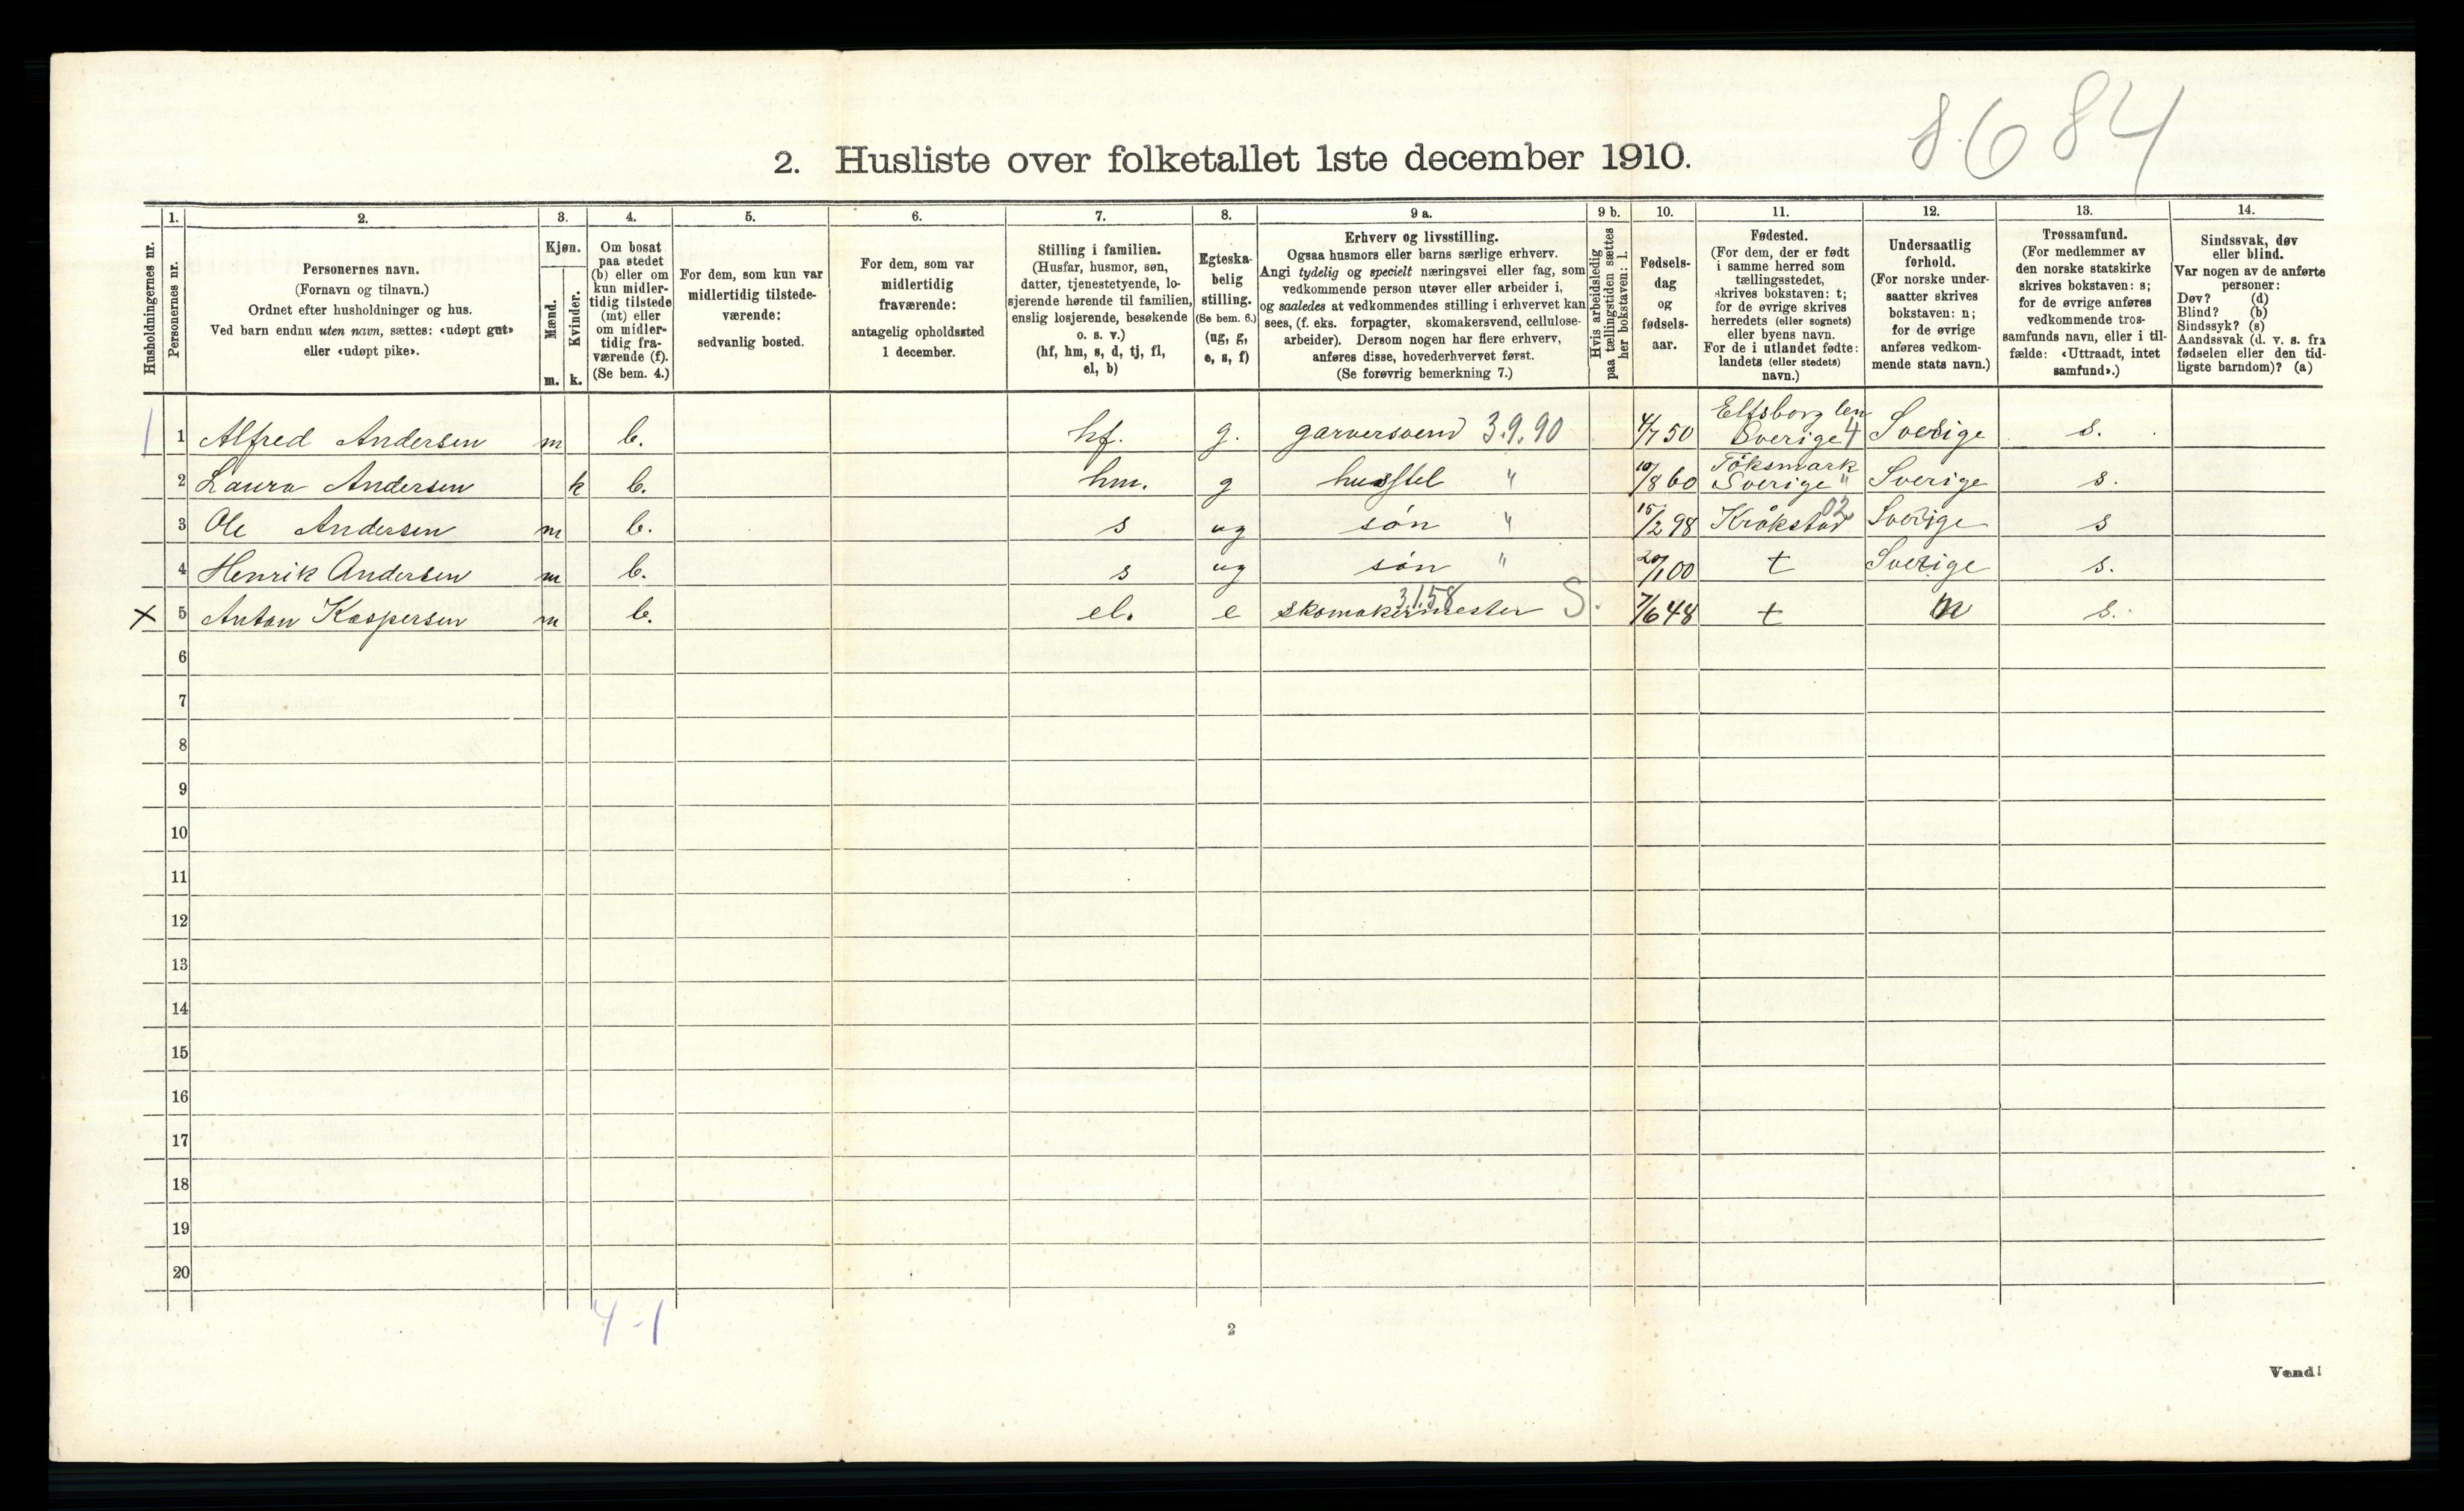 8684
2. Husliste over folketallet 1ste december 1910.
Husholdningernes nr.
1. Personernes nr.
2. Personernes navn.
(Fornavn og tilnavn.)
Ordnet efter husholdninger og hus.
Ved barn endnu uten navn, sættes: «udøpt gut»
eller «udøpt pike».
3. Kjøn.
Mænd. m.
Kvinder. k.
4. Om bosat
paa stedet
(b) eller om
kun midler-
tidig tilstede
(mt) eller
om midler-
tidig fra-
værende (f).
(Se bem. 4.)
5. For dem, som kun var
midlertidig tilstede-
værende:
sedvanlig bosted.
6. For dem, som var
midlertidig
fraværende:
antagelig opholdssted
1 december.
7. Stilling i familien.
(Husfar, husmor, søn,
datter, tjenestetyende, lo-
sjerende hørende til familien,
enslig losjerende, besøkende
o. s. v.)
(hf, hm, s, d, tj, fl,
el, b)
8. Egteska-
belig
stilling.
(Se bem. 6.)
(ug, g,
e, s, f)
9 a. Erhverv og livsstilling.
Ogsaa husmors eller barns særlige erhverv.
Angi tydelig og specielt næringsvei eller fag, som
vedkommende person utøver eller arbeider i,
og saaledes at vedkommendes stilling i erhvervet kan
sees, (f. eks. forpagter, skomakersvend, cellulose-
arbeider). Dersom nogen har flere erhverv,
anføres disse, hovederhvervet først.
(Se forøvrig bemerkning 7.)
9 b. Hvis arbeidsledig
paa tællingstiden sættes
her bokstaven: l.
10. Fødsels-
dag
og
fødsels-
aar.
11. Fødested.
(For dem, der er født
i samme herred som
tællingsstedet,
skrives bokstaven: t;
for de øvrige skrives
herredets (eller sognets)
eller byens navn.
For de i utlandet fødte:
landets (eller stedets)
navn.)
12. Undersaatlig
forhold.
(For norske under-
saatter skrives
bokstaven: n;
for de øvrige
anføres vedkom-
mende stats navn.)
13. Trossamfund.
(For medlemmer av
den norske statskirke
skrives bokstaven: s;
for de øvrige anføres
vedkommende tros-
samfunds navn, eller i til-
fælde: «Uttraadt, intet
samfund».)
14. Sindssvak, døv
eller blind.
Var nogen av de anførte
personer:
Døv? (d)
Blind? (b)
Sindssyk? (s)
Aandssvak (d. v. s. fra
fødselen eller den tid-
ligste barndom)? (a)
Elfsborg len
1 1 Alfred Andersen m b. hf. g. garversvend 3.9.90 4/7 50 Sverige 4 Sverige s.
Töksmark
2 Laura Andersen k b. hm. g husstel " 10/8 60 Sverige " Sverige s.
02
3 Ole Andersen m b. s ug søn " 15/2 98 Krökstad Sverige s
4 Henrik Andersen m b. s ug søn " 20/1 00 t Sverige s.
3158
× 5 Anton Kaspersen m b. el. e skomakermester S. 7/6 48 t n s.
6
7
8
9
10
11
12
13
14
15
16
17
18
19
20
4-1
2
Vend!